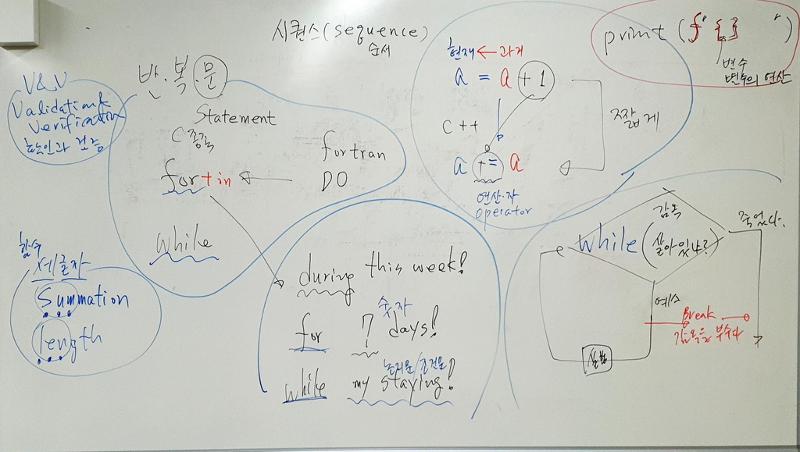 시퀀스(sequence)
순서
print(f' {} ')
변수
변수의 연산
V&V
Validation &
Verification
확인과 검증
반·복문
Statement
C
fortran
for + in
DO
while
현재 ← 과거
a = a + 1
C++
짧게
a += a
연산자
operator
함수
세글자
Summation
length
during this week!
숫자
for 7 days!
논리문/조건문
while my staying!
감옥
while(살아있냐?)
죽었다.
예스
Break
감옥을 부수다
실행